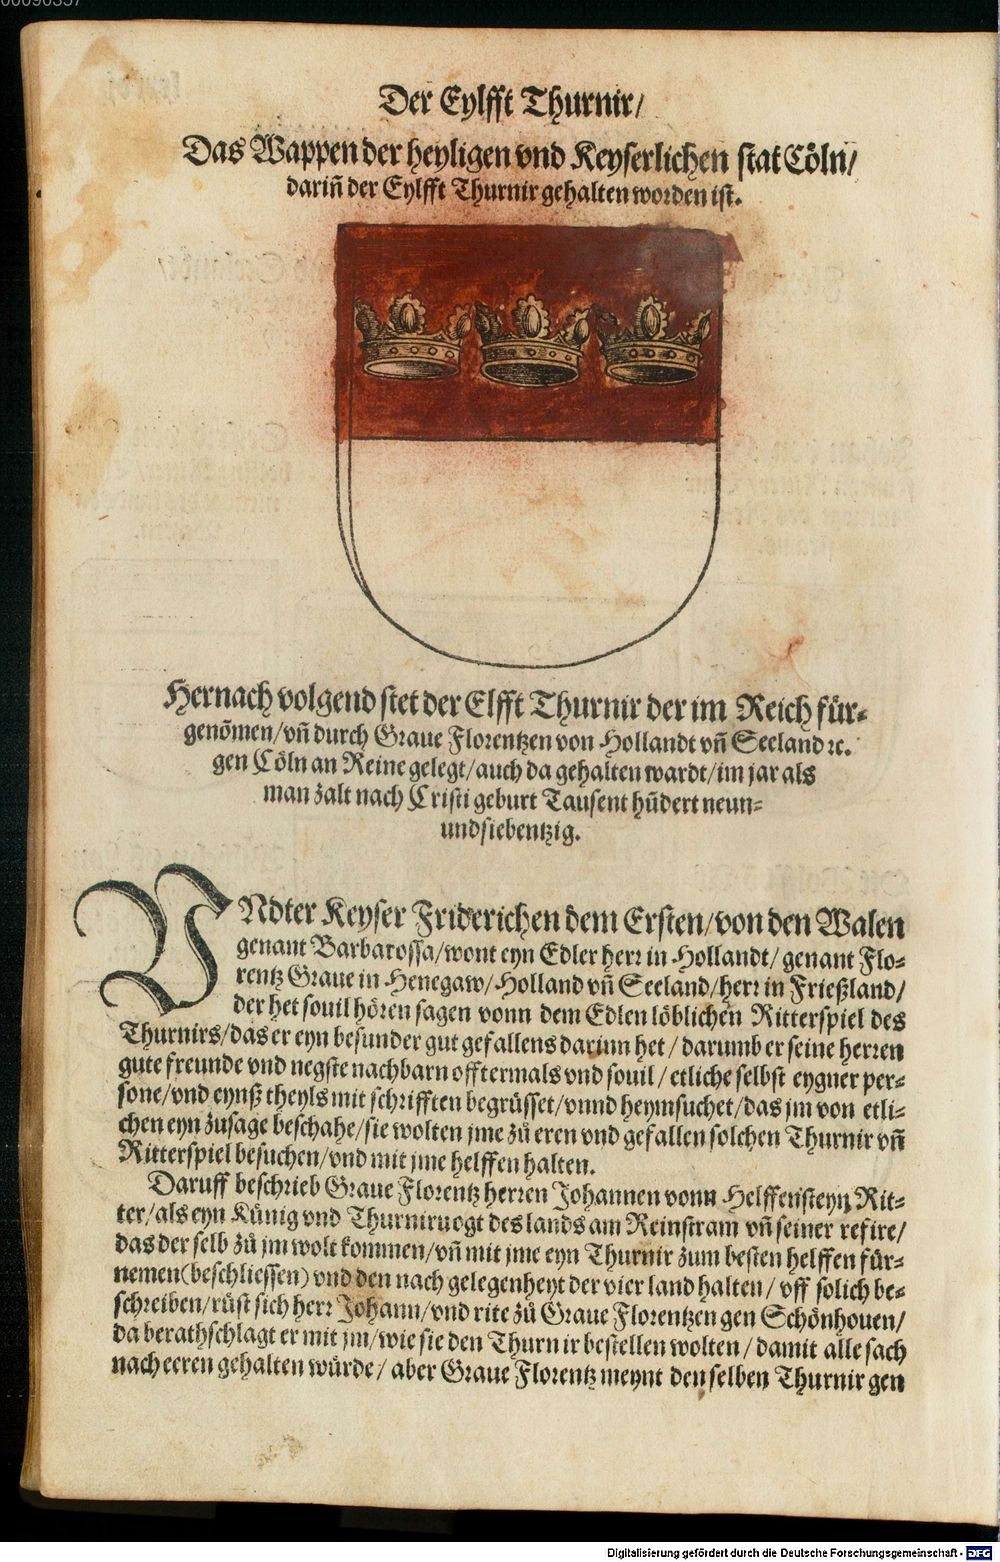 00090357
Der Eylfft Thurnir/
Das Wappen der heyligen vnd Keyserlichen stat Cöln/
dariñ der Eylfft Thurnir gehalten worden ist.
Hernach volgend stet der Elfft Thurnir der im Reich für-
genõmen/vñ durch Graue Florentzen von Hollandt vñ Seeland ꝛc.
gen Cöln an Reine gelegt/auch da gehalten wardt/im jar als
man zalt nach Cristi geburt Tausent hũdert neun-
undsiebentzig.
VNdter Keyser Friderichen dem Ersten/von den Walen
genant Barbarossa/wont eyn Edler herr in Hollandt/genant Flo-
rentz Graue in Henegaw/Holland vñ Seeland/herr in Frießland/
der het souil hören sagen vonn dem Edlen löblichen Ritterspiel des
Thurnirs/das er eyn besunder gut gefallens darinn het/darumb er seine herren
gute freunde vnd negste nachbarn offtermals vnd souil/etliche selbst eygner per-
sone/vnd eynß theyls mit schrifften begrüsset/vnnd heymsuchet/das jm von etli-
chen eyn zusage beschahe/sie wolten jme zů eren vnd gefallen solchen Thurnir vñ
Ritterspiel besuchen/vnd mit jme helffen halten.
Daruff beschrieb Graue Florentz herren Johannen vonn Helffensteyn Rit-
ter/als eyn Künig vnd Thurniruogt des lands am Reinstram vñ seiner refire/
das der selb zů jm wolt kommen/vñ mit jme eyn Thurnir zum besten helffen für-
nemen(beschliessen)vnd den nach gelegenheyt der vier land halten/vff solich be-
schreiben/rüst sich herr Johann/vnd rite zů Graue Florentzen gen Schönhouen/
da berathschlagt er mit jm/wie sie den Thurnir bestellen wolten/damit alle sach
nach eeren gehalten würde/aber Graue Florentz meynt denselben Thurnir gen
Digitalisierung gefördert durch die Deutsche Forschungsgemeinschaft - DFG